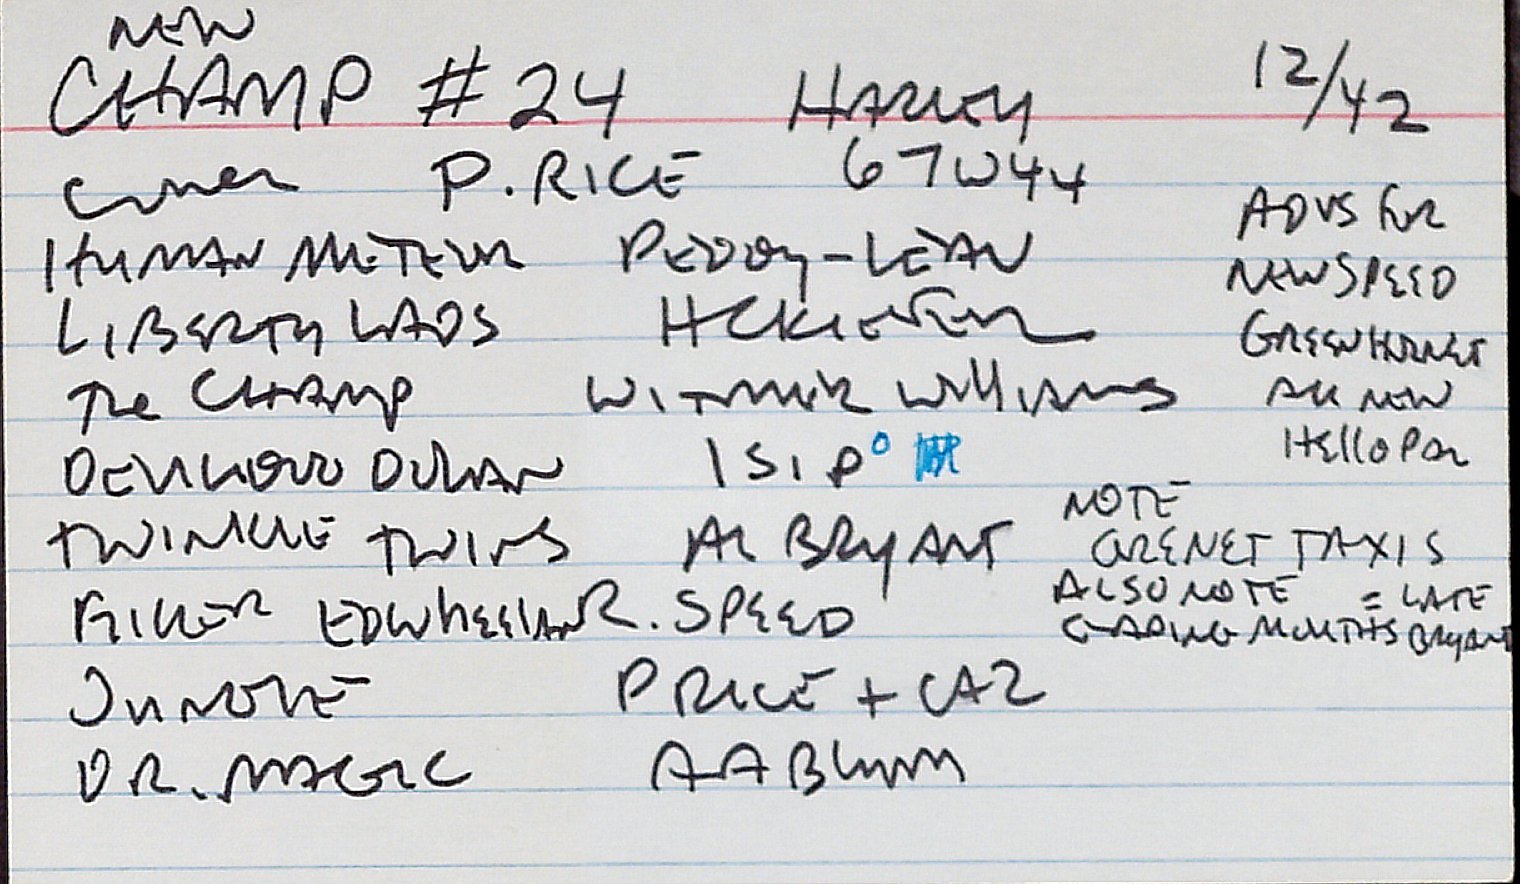 NEW
CHAMP # 24 HARVEY 12/42
COVER P. RICE 67W44
HUMAN METEOR PEDDY-LEAN
LIBERTY LADS HCKIEFER
THE CHAMP WITMER WILLIAMS
DUHAN ISIP
TWINKLE TWINS AL BRYANT
FILLER ED WHEELAN R. SPEED
PRICE + CAZ
DR. MAGIC A A BLUM
ADVS FOR
NEW SPEED
GREEN HORNET
ALL NEW
HELLO PAL
NOTE
GRENET TAXIS
ALSO NOTE = LATE
MONTHS BRYANT